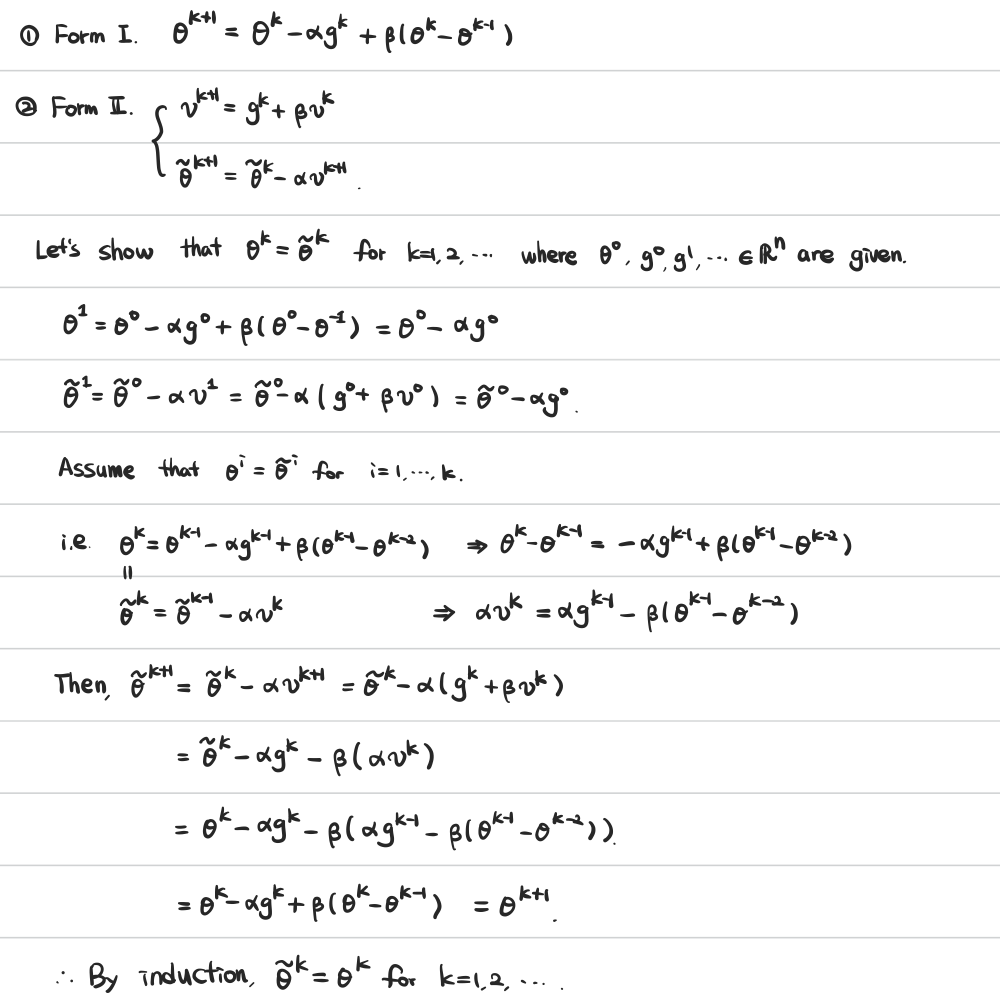 ① Form I. θ^{k+1} = θ^k - αg^k + β(θ^k - θ^{k-1})
② Form II. { v^{k+1} = g^k + βv^k
θ̃^{k+1} = θ̃^k - αv^{k+1}.
Let's show that θ^k = θ̃^k for k=1,2,... where θ^0, g^0, g^1, ... ∈ ℝ^n are given.
θ^1 = θ^0 - αg^0 + β(θ^0 - θ^{-1}) = θ^0 - αg^0
θ̃^1 = θ̃^0 - αv^1 = θ̃^0 - α(g^0 + βv^0) = θ̃^0 - αg^0.
Assume that θ^i = θ̃^i for i=1,...,k.
i.e. θ^k = θ^{k-1} - αg^{k-1} + β(θ^{k-1} - θ^{k-2}) ⇒ θ^k - θ^{k-1} = -αg^{k-1} + β(θ^{k-1} - θ^{k-2})
=
θ̃^k = θ̃^{k-1} - αv^k ⇒ αv^k = αg^{k-1} - β(θ^{k-1} - θ^{k-2})
Then, θ̃^{k+1} = θ̃^k - αv^{k+1} = θ̃^k - α(g^k + βv^k)
= θ̃^k - αg^k - β(αv^k)
= θ^k - αg^k - β(αg^{k-1} - β(θ^{k-1} - θ^{k-2})).
= θ^k - αg^k + β(θ^k - θ^{k-1}) = θ^{k+1}.
∴ By induction, θ̃^k = θ^k for k=1,2, ... .